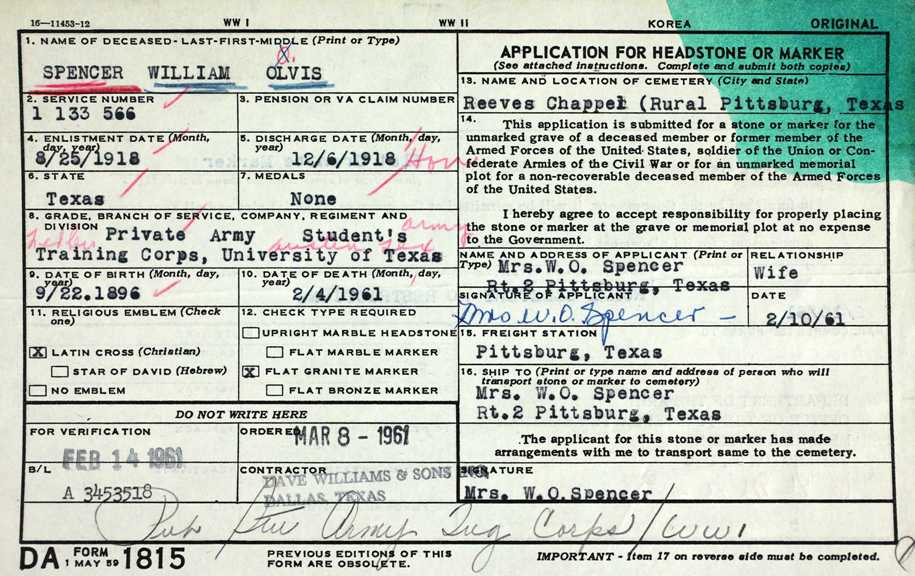 16—11453-12 WW I WW II KOREA ORIGINAL
1. NAME OF DECEASED - LAST-FIRST-MIDDLE (Print or Type)
SPENCER WILLIAM OLVIS
2. SERVICE NUMBER
1 133 566
3. PENSION OR VA CLAIM NUMBER
4. ENLISTMENT DATE (Month, day, year)
8/25/1918
5. DISCHARGE DATE (Month, day, year)
12/6/1918 Hon
6. STATE
Texas
7. MEDALS
None
8. GRADE, BRANCH OF SERVICE, COMPANY, REGIMENT AND
DIVISION
Private Army Student's army
Training Corps, University of Texas
9. DATE OF BIRTH (Month, day, year)
9/22.1896
10. DATE OF DEATH (Month, day, year)
2/4/1961
11. RELIGIOUS EMBLEM (Check one)
X LATIN CROSS (Christian)
STAR OF DAVID (Hebrew)
NO EMBLEM
12. CHECK TYPE REQUIRED
UPRIGHT MARBLE HEADSTONE
FLAT MARBLE MARKER
X FLAT GRANITE MARKER
FLAT BRONZE MARKER
DO NOT WRITE HERE
FOR VERIFICATION
FEB 14 1961
ORDERED
MAR 8 - 1961
B/L
A 3453518
CONTRACTOR
DAVE WILLIAMS & SONS INC.
DALLAS, TEXAS
APPLICATION FOR HEADSTONE OR MARKER
(See attached instructions. Complete and submit both copies)
13. NAME AND LOCATION OF CEMETERY (City and State)
Reeves Chappel (Rural Pittsburg, Texas
14. This application is submitted for a stone or marker for the
unmarked grave of a deceased member or former member of the
Armed Forces of the United States, soldier of the Union or Con-
federate Armies of the Civil War or for an unmarked memorial
plot for a non-recoverable deceased member of the Armed Forces
of the United States.
I hereby agree to accept responsibility for properly placing
the stone or marker at the grave or memorial plot at no expense
to the Government.
NAME AND ADDRESS OF APPLICANT (Print or Type)
Mrs.W.O. Spencer
Rt.2 Pittsburg, Texas
RELATIONSHIP
Wife
SIGNATURE OF APPLICANT
Mrs W.O. Spencer —
DATE
2/10/61
15. FREIGHT STATION
Pittsburg, Texas
16. SHIP TO (Print or type name and address of person who will
transport stone or marker to cemetery)
Mrs. W.O. Spencer
Rt.2 Pittsburg, Texas
The applicant for this stone or marker has made
arrangements with me to transport same to the cemetery.
SIGNATURE
Mrs. W.O.Spencer
Army Corps/WWI
DA FORM 1815
1 MAY 59
PREVIOUS EDITIONS OF THIS
FORM ARE OBSOLETE.
IMPORTANT - Item 17 on reverse side must be completed.